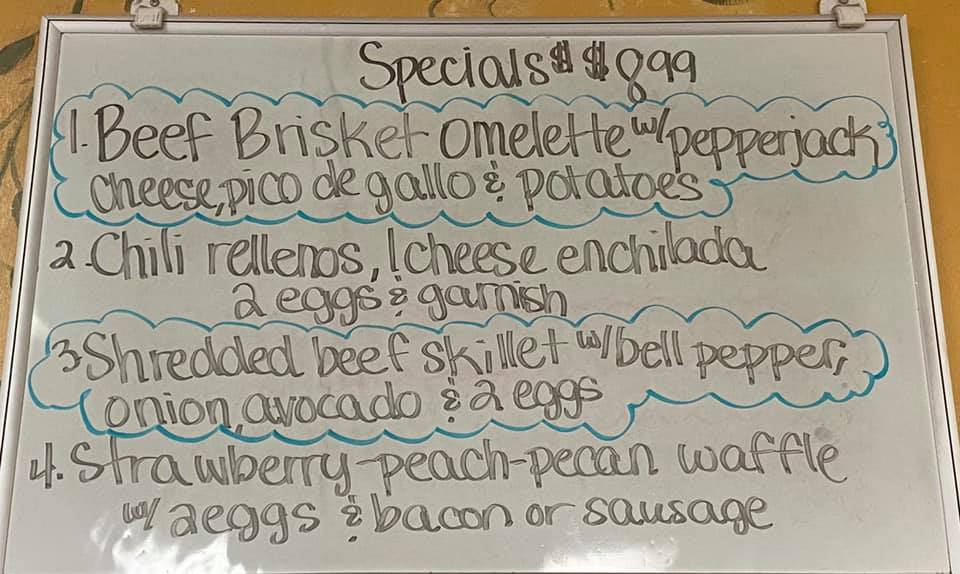 Specials $ $ 8.99
1. Beef Brisket omelette w/ pepperjack
cheese, pico de gallo & potatoes
2. Chili rellenos, 1 cheese enchilada
2 eggs & garnish
3 Shredded beef skillet w/ bell pepper,
onion, avocado & 2 eggs
4. Strawberry-peach-pecan waffle
w/ 2 eggs & bacon or sausage